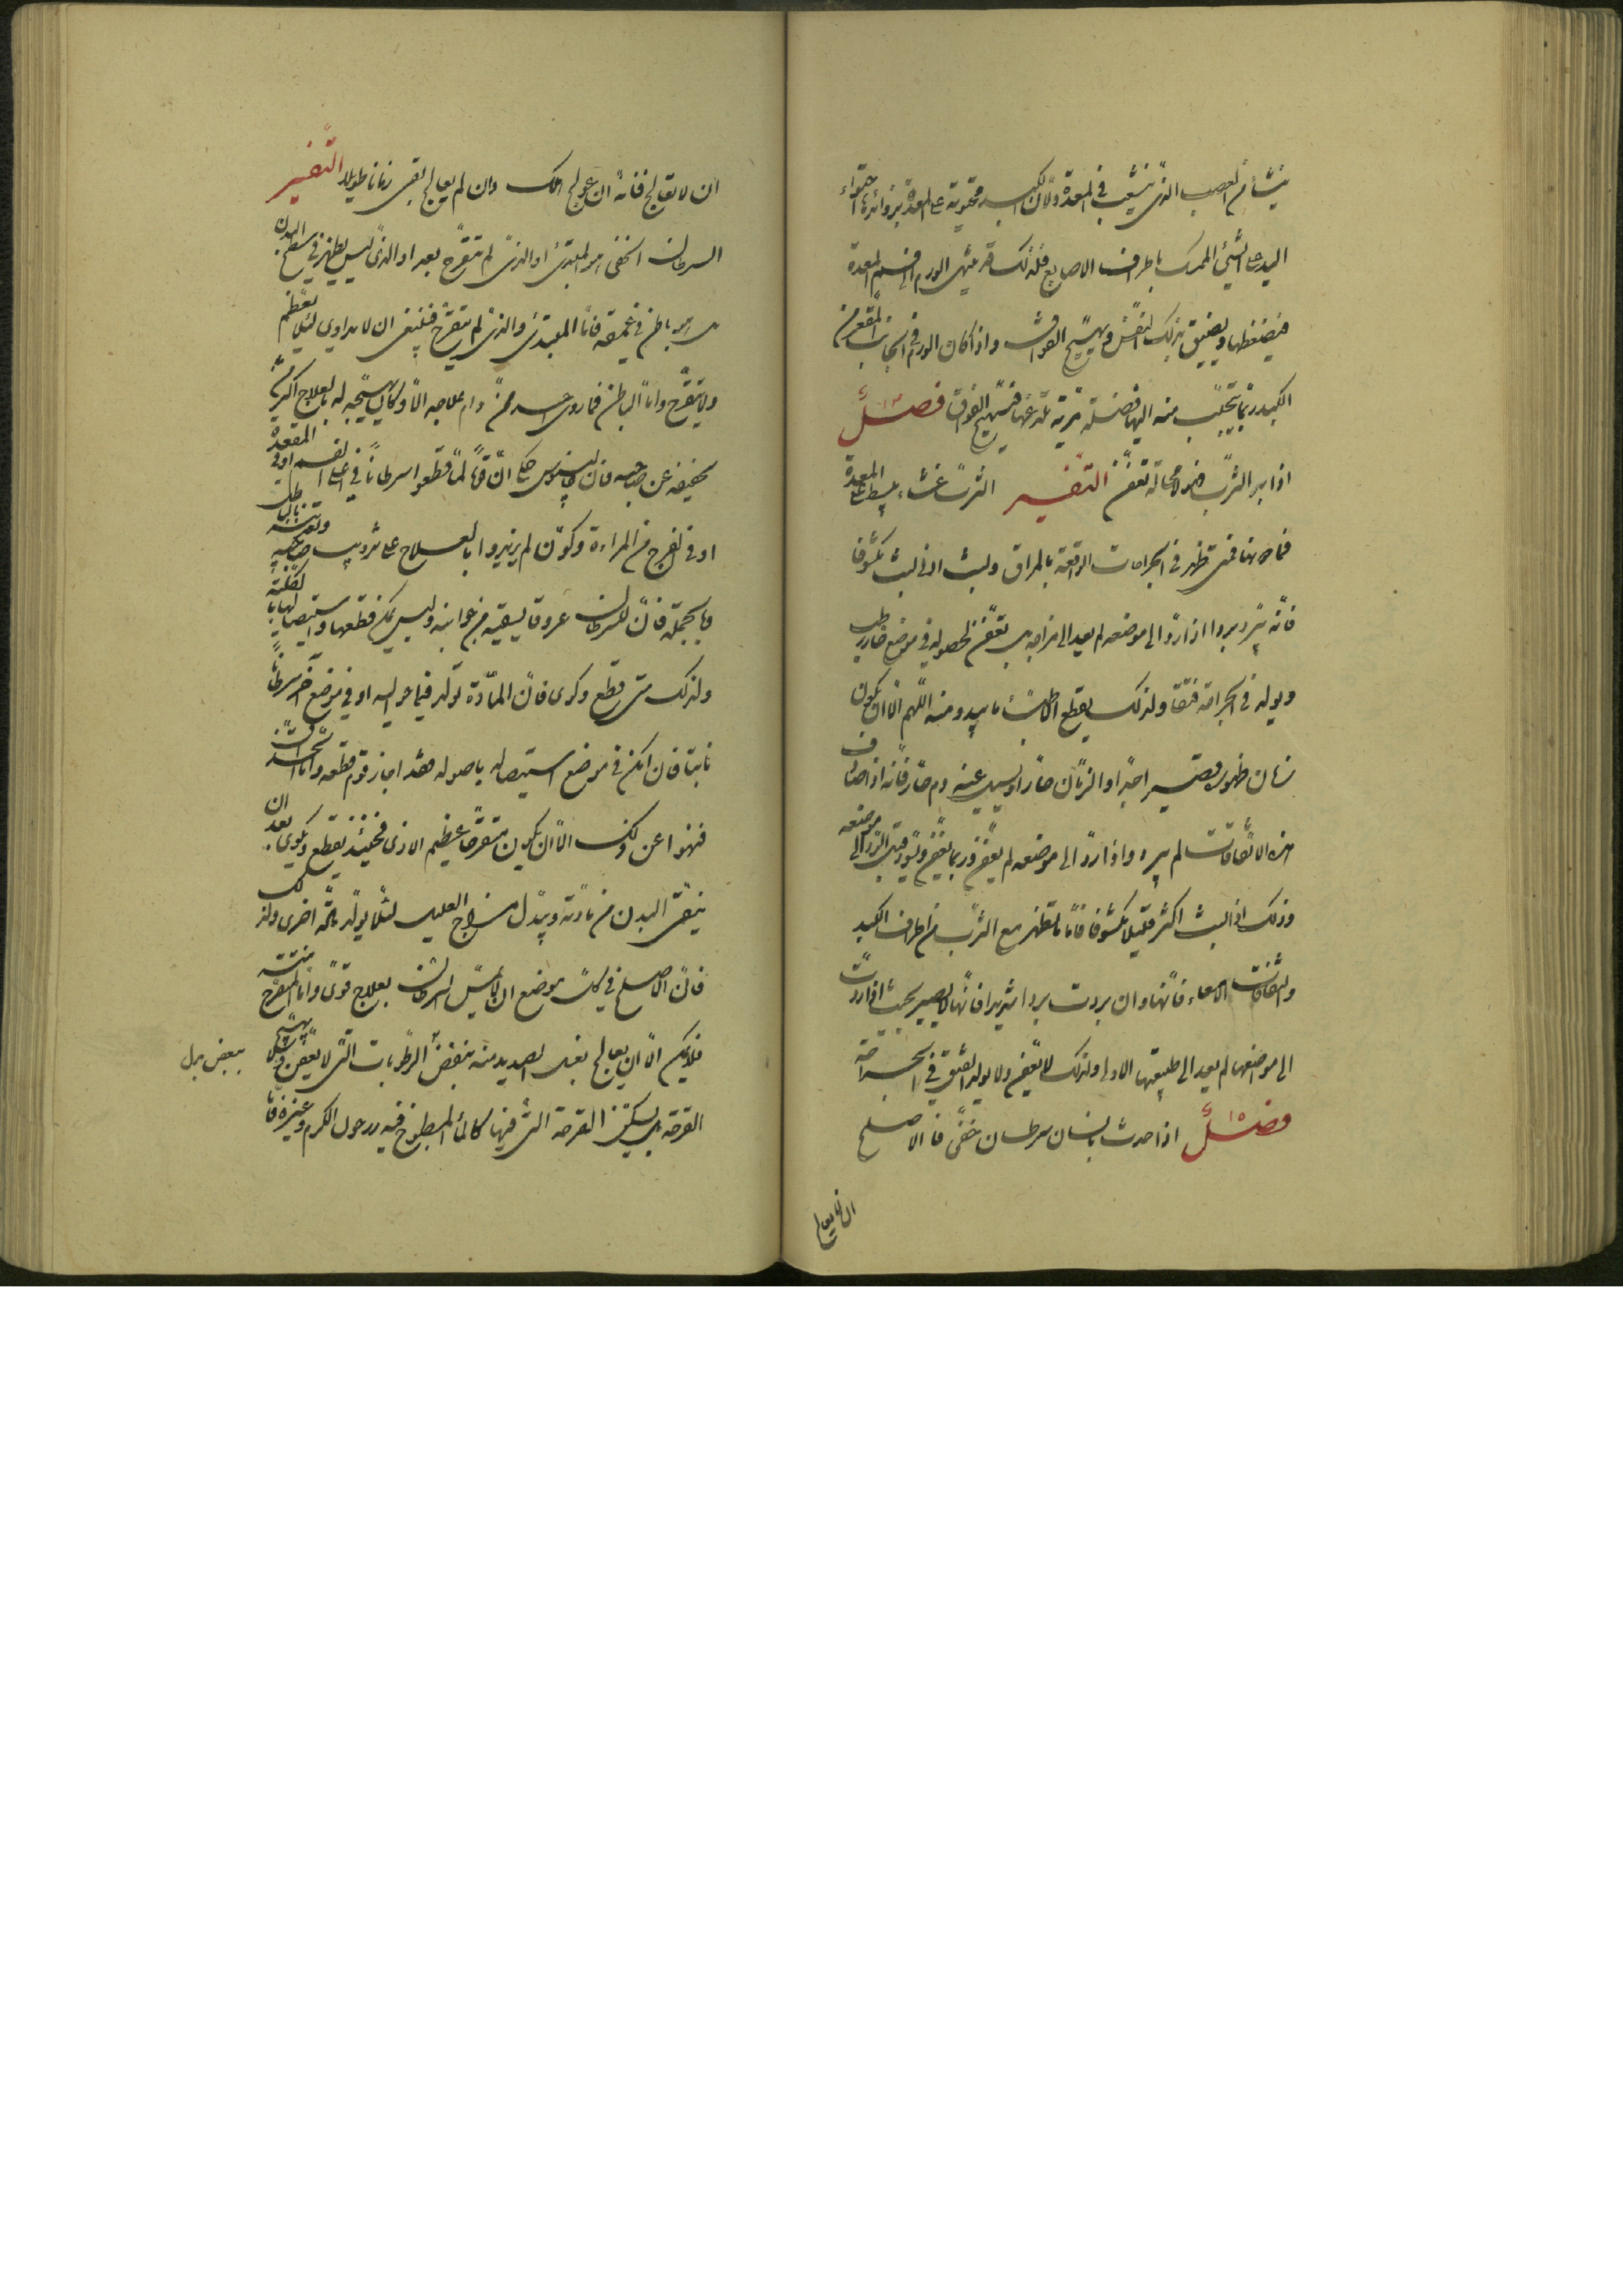 ينشأ من العصب الذي ينشعب في المعدة ولأن الكبد محتوية على المعدة بزوائدها احتواء
اليد على الشيء الممسك باطراف الاصابع فلذلك قد ينتهي الورم الى فم المعدة
فيضغطها ويضيق بذلك النفس ويهيج الفواق واذا كان الورم في الجانب المقعر من
الكبد ربما تجلب منه اليها فضلة مرية تلذعها فيهيج الفواق فصل
اذا برد الثرب فهو لا محالة تعفن التفسير الثرب غشاء يبسط على المعدة
فما دونها فمتى ظهر في الجراحات الواقعة بالمراق ولبث ادنى لبث مكشوفا
فانه يبرد بردا اذا رد الى موضعه لم يعد الى مزاجه بل تعفن لحصوله في موضع حار رطب
ويولد في الجراحة فتقا ولذلك يقطع الاطباء ما يبدو منه اللهم الا ان يكون
زمان ظهوره قصيرا جدا او الزمان حارا ويسيل عنه دم حار فانه اذا صادف
هذه الاتفاقات لم يبرد واذا رد الى موضعه لم يعفن وربما تعفن وتسود قبل الرد الى موضعه
وذلك اذا لبث اكثر قليلا مكشوفا فاما ما تظهر مع الثرب من اطراف الكبد
ولفافات الامعاء فانها وان بردت بردا شديدا فانها لا يصير بحيث اذا ردت
الى موضعها لم يعد الى طبيعتها الاولى ولذلك لا تعفن ولا يولد الفتق في الجراحة
فصل اذا حدث بانسان سرطان خفي فالاصلح
ان لا يعالج
ان لا يعالج فانه ان عولج هلك وان لم يعالج بقي زمانا طويلا التفسير
السرطان الخفي هو المبتدئ او الذي لم يتقرح بعد او الذي ليس يظهر في سطح البدن
بل هو باطن في عمقه فاما المبتدئ والذي لم يتقرح فينبغي ان لا يداوى لئلا يعظم
ولا يتقرح واما الباطن فما روى احد ممن رام علاجه الا وكان تهييجه له بالعلاج اكثر من
تخفيفه عن صاحبه فان جالينوس حكى ان قوما لما قطعوا سرطانا في اعلى الفم او في المقعدة
او في الفرج من المراءة وكووه لم يزيدوا بالعلاج على تعذيب صاحبه وتقريبه بالباطل
وبالجملة فان للسرطان عروقا يسقيه من جوانبه وليس يمكن قطعها واستيصالها بالكلية
ولذلك متى قطع وكوى فان المادة تولد فيما حواليه او في موضع آخر سرطانا
ثابتا فان امكن في موضع استيصاله باصوله فقد اجاز قوم قطعه واما الحذاق
فنهوا عن ذلك الا ان يكون متقرحا عظيم الاذى فحينئذ يقطع ويكوى بعد ان
ينقى البدن من مادته ويبدل مزاج العليل لئلا يولد مادة اخرى ولذلك
فان الاصلح في كل موضع ان لا يمس السرطان بعلاج قوي واما المتقرح منه
فلا يمكن الا ان يعالج بغسل الصديد منه بنفض الرطوبات التي لا يعفن ولا يهيج
القرحة بل يسكن القرحة التي فيها كالماء المطبوخ فيه ورق الكرم وغيره فاما